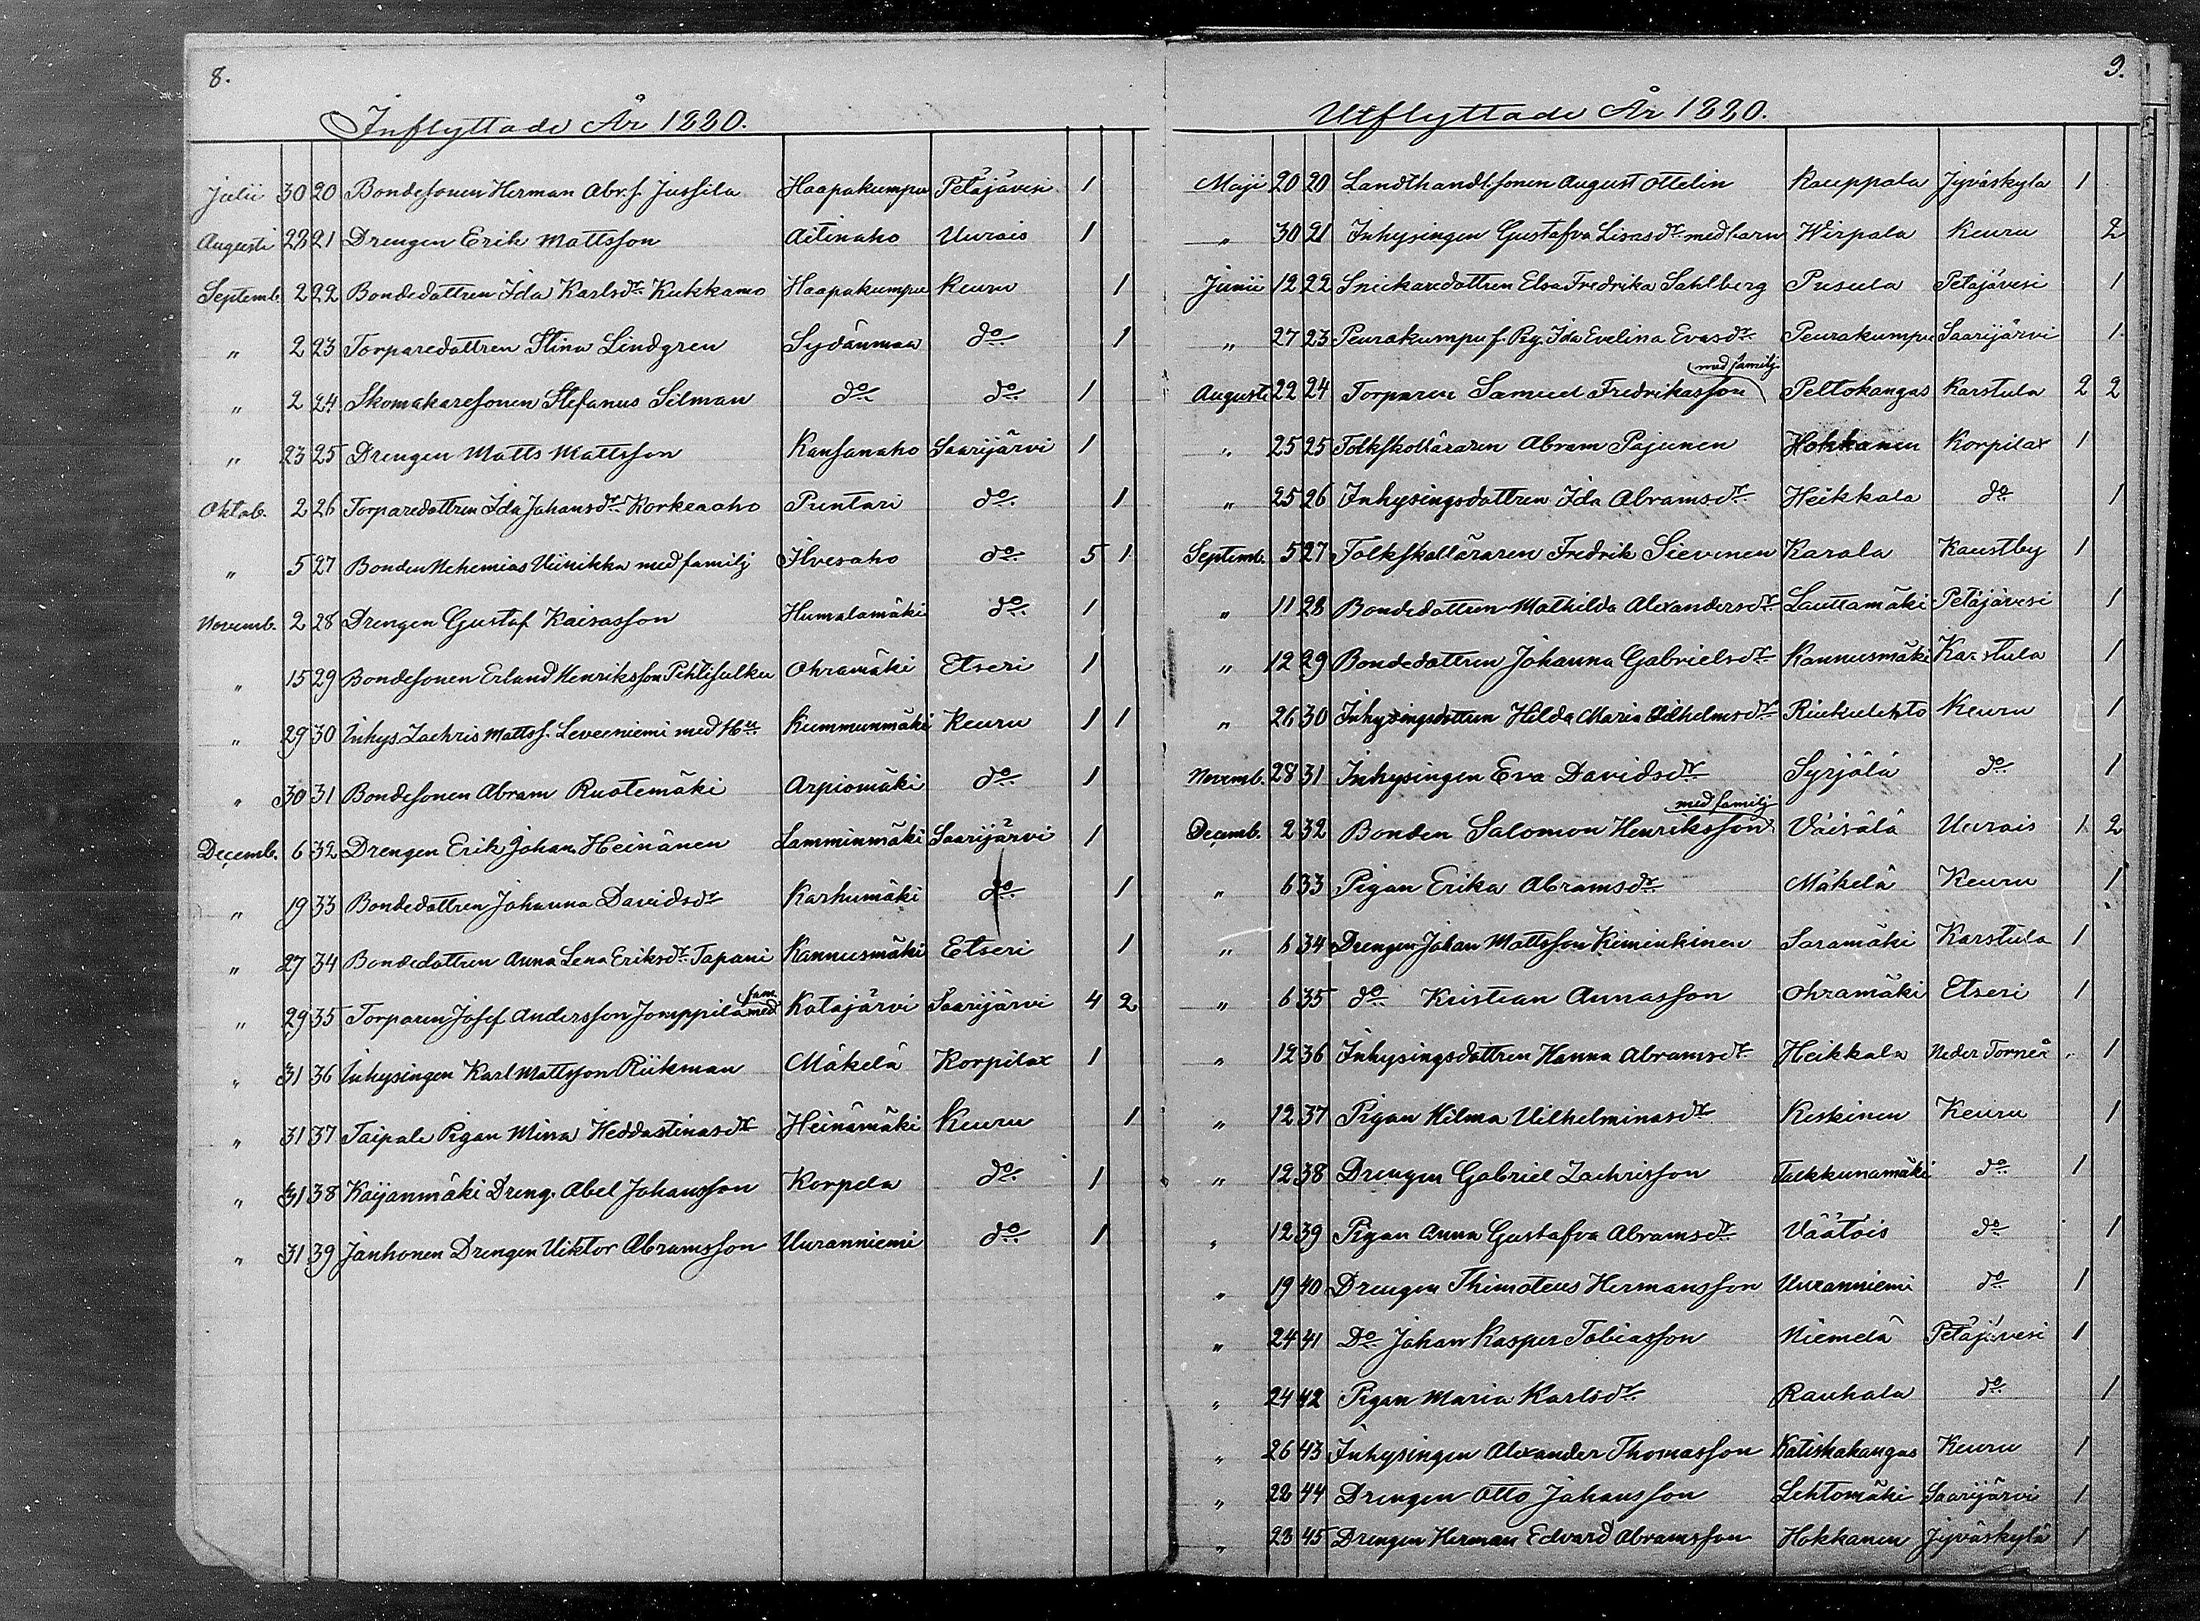 8.
Inflyttade År 1880.
Julii 30 20 Bondesonen Herman Abr.s. Jussila Haapakumpu Petäjävesi 1
Augusti 28 21 Drengen Erik Mattsson Aitinaho Uurais 1
Septemb. 2 22 Bondedottren Ida Karlsdr Kukkamo Haapakumpu Keuru 1
" 2 23 Torparedottren Stina Lindgren Sydänmaa do 1
" 2 24 Skomakaresonen Stefanus Silman do do 1
" 23 25 Drengen Matts Mattsson Kansanaho Saarijärvi 1
Oktob. 2 26 Torparedottren Ida Johansdr Korkeaaho Puntari do 1
" 5 27 Bonden Nehemias Viinikka med familj Ilvesaho do 5 1
Novemb. 2 28 Drengen Gustaf Kaisasson Humalamäki do 1
" 15 29 Bondesonen Erland Henriksson Pihlisulku Ohramäki Etseri 1
" 29 30 Inhys. Zachris Matts s. Leveeniemi med Hu Kummunmäki Keuru 1 1
" 30 31 Bondesonen Abram Ruotemäki Arpiomäki do 1
Decemb. 6 32 Drengen Erik Johan Heinänen Lamminmäki Saarijärvi 1
" 19 33 Bondedottren Johanna Davidsdr Karhumäki do 1
" 27 34 Bondedottren Anna Lena Eriksdr Tapani Kannusmäki Etseri 1
" 29 35 Torparen Josef Andersson Jomppila med fam. Katajärvi Saarijärvi 4 2
" 31 36 Inhysingen Karl Mattsson Riikman Mäkelä Korpilax 1
" 31 37 Taipale Pigan Mina Heddastinasdr Heinämäki Keuru 1
" 31 38 Kaijanmäki Dreng. Abel Johansson Korpela do 1
" 31 39 Janhonen Drengen Viktor Abramsson Uuranniemi do 1
9.
Utflyttade År 1880.
Maji 20 20 Landthandl.sonen August Ottelin Kauppala Jyväskyla 1
" 30 21 Inhysingen Gustafva Lisasdr med barn Wirpala Keuru 2
Junii 12 22 Snickaredottren Elsa Fredrika Sahlberg Pusula Petäjävesi 1
" 27 23 Peurakumpu f. Pig. Ida Evelina Evasdr Peurakumpu Saarijärvi 1
Augusti 22 24 Torparen Samuel Fredrikasson med familj Peltokangas Karstula 2 2
" 25 25 Folkskolläraren Abram Pajunen Hokkanen Korpilax 1
" 25 26 Inhysingsdottren Ida Abramsdr Heikkala do 1
Septemb. 5 27 Folkskolläraren Fredrik Sievinen Karala Kaustby 1
" 11 28 Bondedottren Mathilda Alexandersdr Lauttamäki Petäjävesi 1
" 12 29 Bondedottren Johanna Gabrielsdr Kannusmäki Karstula 1
" 26 30 Inhysingsdottren Hilda Maria Vilhelmsdr Riukulehto Keuru 1
Novemb. 28 31 Inhysingen Eva Davidsdr Syrjälä do 1
Decemb. 2 32 Bonden Salomon Henriksson med familj Väisälä Uurais 1 2
" 6 33 Pigan Erika Abramsdr Mäkelä Keuru 1
" 6 34 Drengen Johan Mattsson Kiminkinen Saramäki Karstula 1
" 6 35 do Kristian Annasson Ohramäki Etseri 1
" 12 36 Inhysingsdottren Hanna Abramsdr Heikkala Neder Torneå 1
" 12 37 Pigan Hilma Vilhelminasdr Keskinen Keuru 1
" 12 38 Drengen Gabriel Zachrisson Talkkunamäki do 1
" 12 39 Pigan Anna Gustafva Abramsdr Väätäis do 1
" 19 40 Drengen Thimoteus Hermansson Uuranniemi do 1
" 24 41 Do Johan Kasper Tobiasson Niemelä Petäjävesi 1
" 24 42 Pigan Maria Karlsdr Rauhala do 1
" 26 43 Inhysingen Alexander Thomasson Katiskakangas Keuru 1
" 28 44 Drengen Otto Johansson Lehtomäki Saarijärvi 1
" 28 45 Drengen Herman Edvard Abramsson Hokkanen Jyväskylä 1